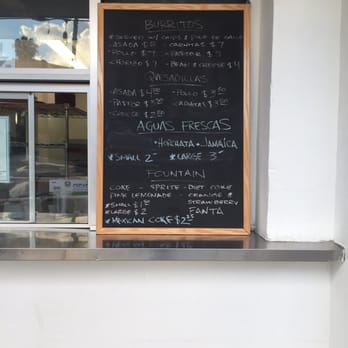 BURRITOS
*SERVED W/ CHIPS & PICO DE GALLO
-ASADA $8 - CARNITAS $7
-POLLO $7 - PASTOR $7
-CHORIZO $7 - BEAN & CHEESE $4
QUESADILLAS
-ASADA $4 - POLLO $3.50
-PASTOR $3.50 - CARNITAS $3.50
-CHEESE $2.50
AGUAS FRESCAS
*HORCHATA *JAMAICA
*SMALL 2 *LARGE 3
FOUNTAIN
COKE - SPRITE - DIET COKE
PINK LEMONADE - ORANGE &
STRAWBERRY
*SMALL $1.50 FANTA
*LARGE $2
*MEXICAN COKE $2.25